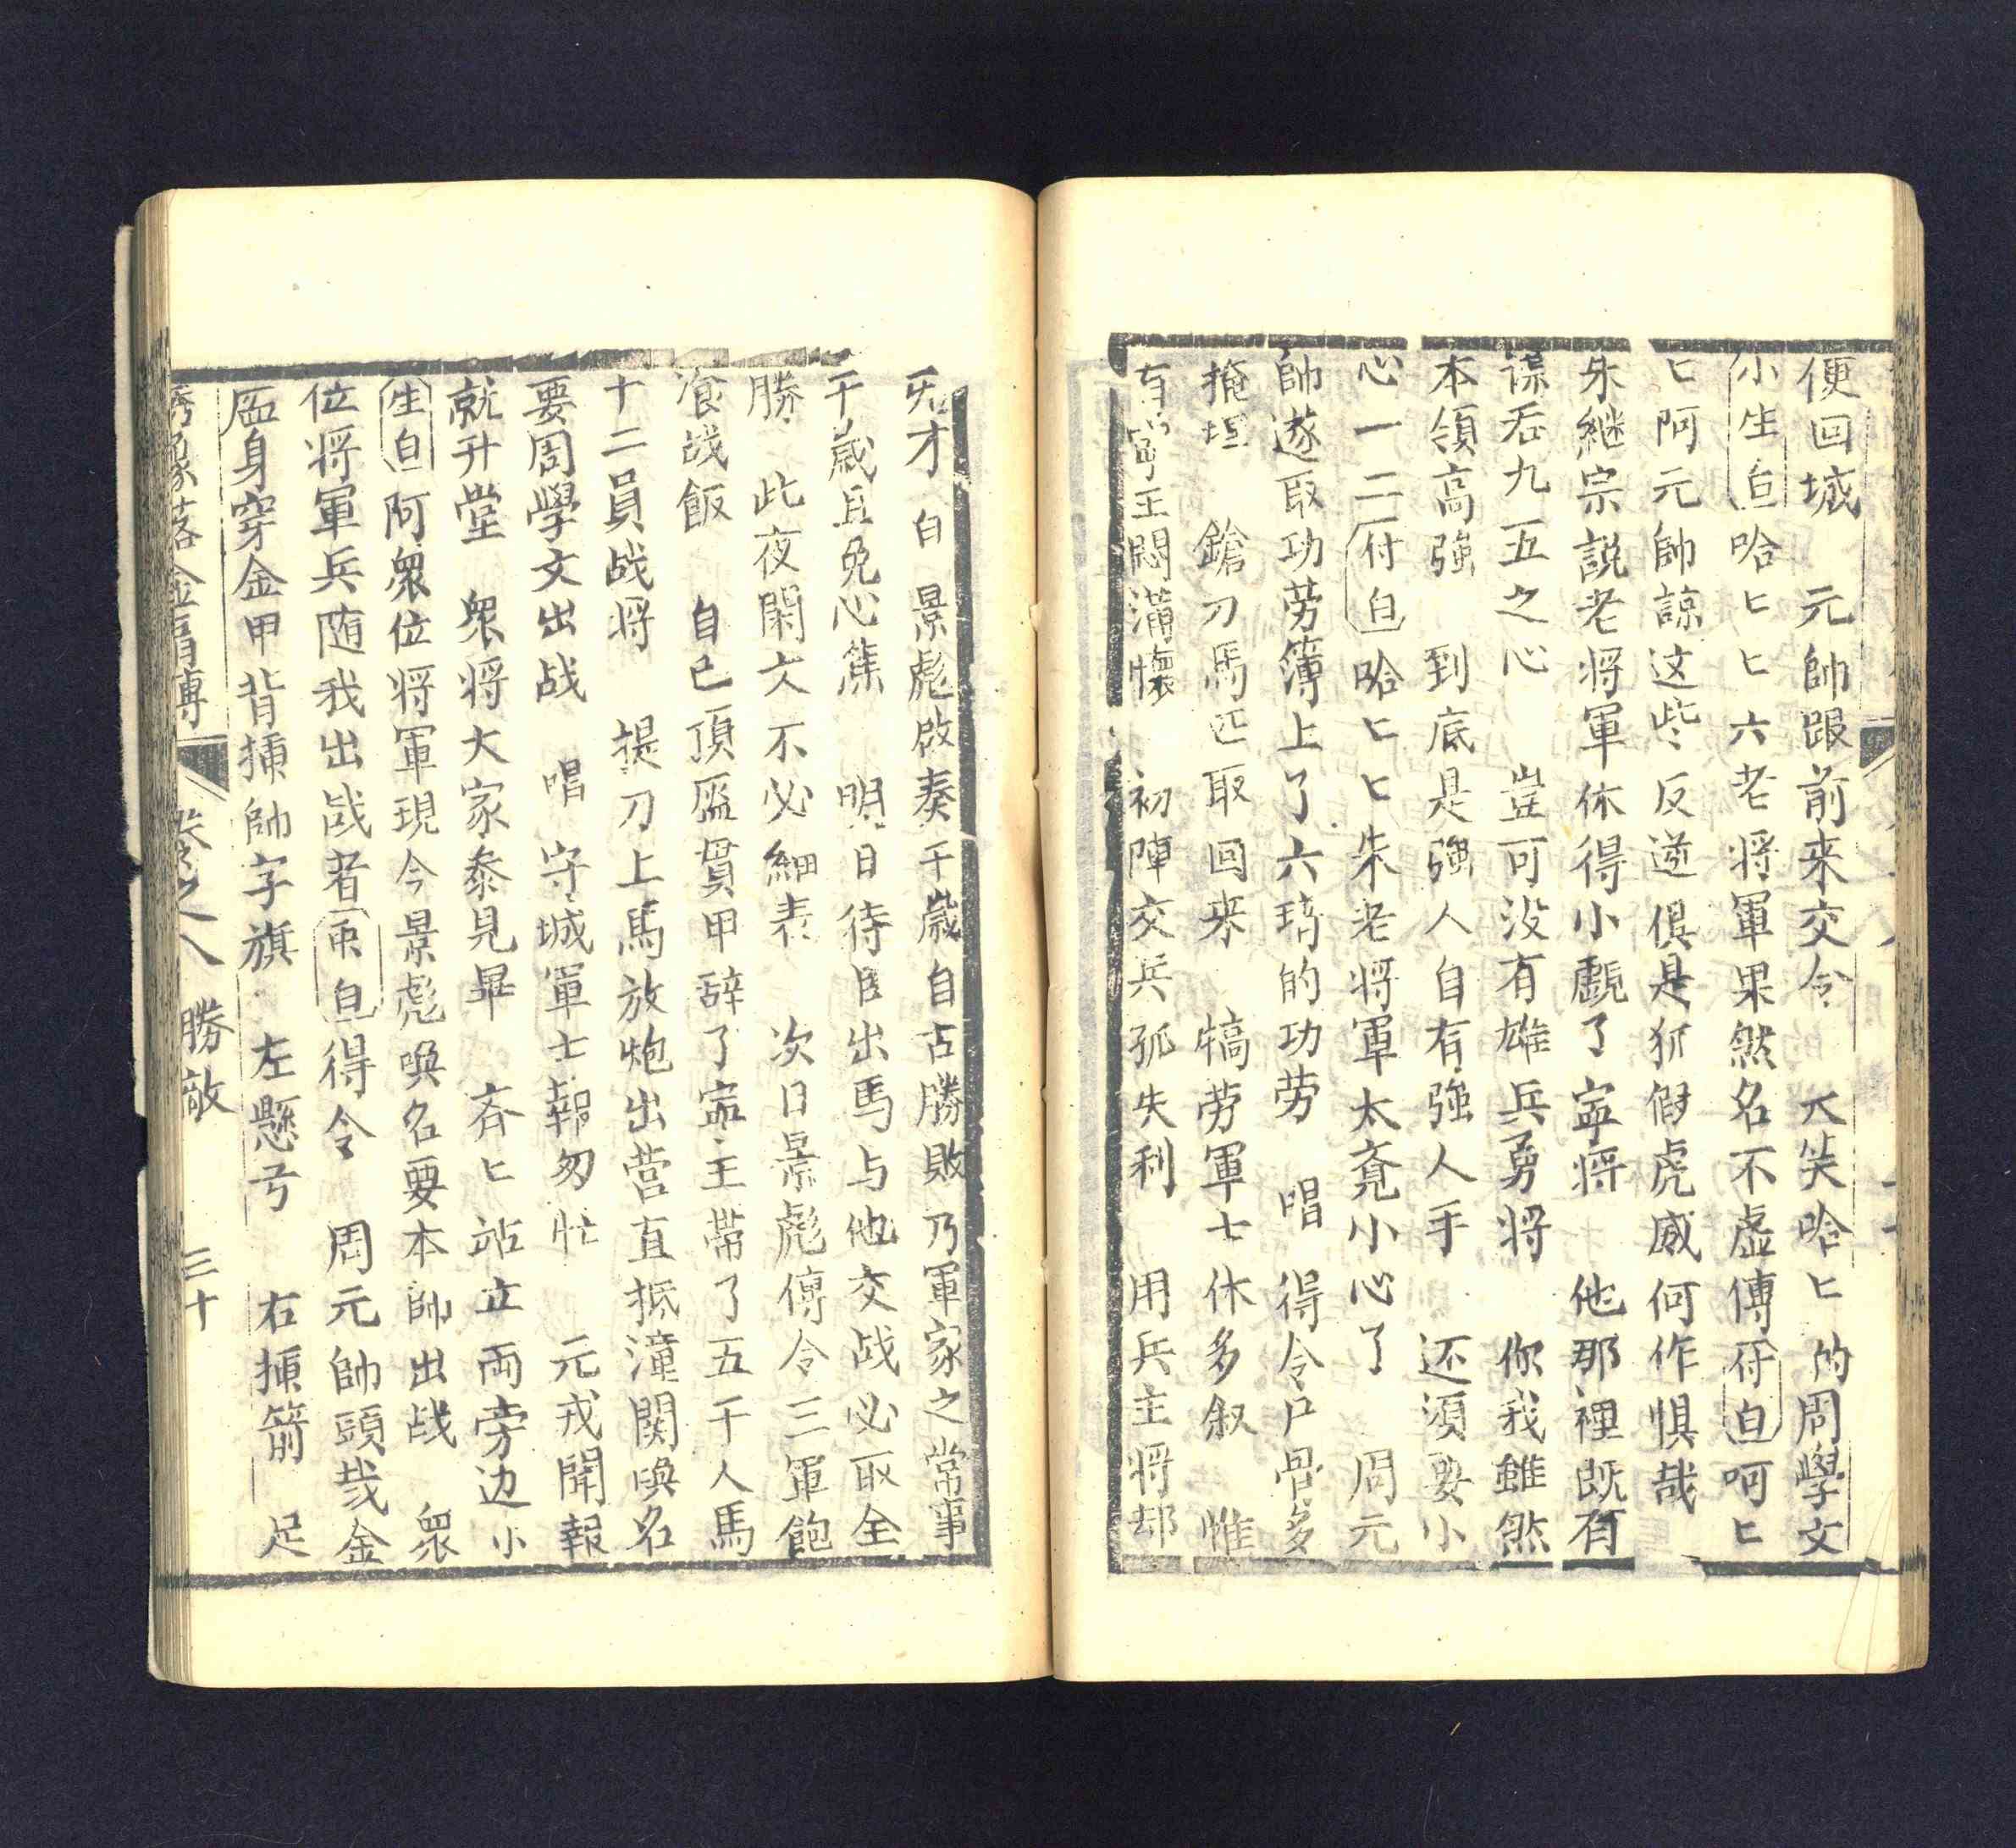 便回城　元帥跟前来交令　大笑哈匕　的周學文
小生白　哈匕匕六老将軍果然名不虛傳　付白　呵匕
匕阿元帥諒这些反逆俱是狐假虎威何作惧哉
朱継宗説老将軍休得小覷了寧将　他那裡既有
謀吞九五之心　豈可没有雄兵勇将　你我雖然
本領高強　到底是強人自有強人手　还須要小
心一二　付白　哈匕匕朱老将軍太覔小心了　周元
帥遂取功劳簿上了六琦的功劳　唱　得令尸骨多
掩埋　鎗刀馬匹取回来　犒劳軍士休多叙　惟
有寧王悶滿懷　初陣交兵孤失利　用兵主将却
无才　白　景彪啟奏千歲自古勝敗乃軍家之常事
千歲且免心焦　明日待臣出馬与他交战必取全
勝　此夜閑文不必細表　次日景彪傳令三軍飽
飡战飯　自已頂盔貫甲辞了寧王帶了五千人馬
十二員战将　提刀上馬放炮出营直抵潼関喚名
要周學文出战　唱　守城軍士報匆忙　元戎聞報
就升堂　衆将大家泰見畢　斉匕站立両旁边　小
生白　阿衆位将軍現今景彪喚名要本帥出战　衆
位将軍兵随我出战者　衆白　得令　周元帥頭戴金
盔身穿金甲背插帥字旗　左懸弓　右插箭　足
綉像落金扇傳　卷之八　勝敵　三十